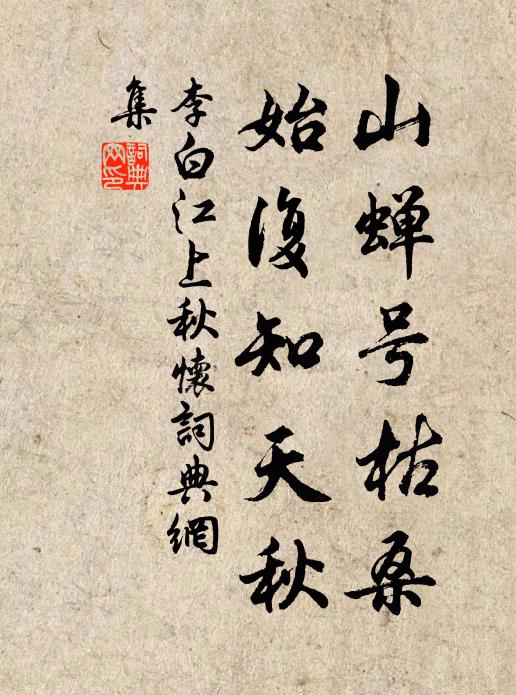 山蝉号枯桑
始復知天秋
李白江上秋懷詞典網
集
詞典
网印